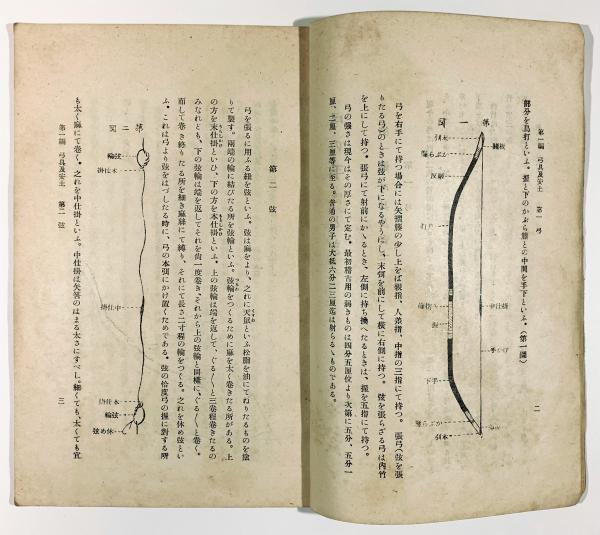 第一編 弓具及安土 第一 弓
二
部分を鳥打といふ。握と下のかぶら籐との中間を手下といふ。(第一圖)
第一圖
弓を右手にて持つ場合には矢摺籐の少し上をば親指、人差指、中指の三指にて持つ。張弓(弦を張
りたる弓)のときは弦が下になるやうにし、末弭を前にして横に右側に持つ。弦を張らざる弓は内竹
を上にして持つ。張弓にて射前にかゝるとき、左側に持ち換へたるときは、握を五指にて持つ。
弓の強さは現今はその厚さにて定む。最初稽古用の弱きものは四分五厘位より次第に五分、五分一
厘、二厘、三厘等に至る。普通の男子は大抵六分二三厘迄は射らるゝものである。
第二 弦
弓を張るに用ふる紐を弦といふ。弦は麻をより、之れに天鼠といふ松脂を油にてねりたるものを塗
りて製す。兩端の輪に結びたる所を弦輪といふ。弦輪をつくるために麻を太く巻きたる所がある。上
の方を末仕掛といひ、下の方を本仕掛といふ。上の弦輪は端を返して、ぐる〳〵と三卷程卷きたるの
みなれども、下の弦輪は端を返してそれを尚一度卷き、それから上の弦輪と同樣に、ぐる〳〵と卷く。
而して卷き終りたる所を細き麻絲にて縛り、それにて長さ二寸程の輪をつくる。之れを休め弦とい
ふ。これは弓より弦をはづしたる時に、弓の本弭にかけ置くためである。弦の恰度弓の握に對する所
第二圖
弦輪
末仕掛
中仕掛
本仕掛
弦輪
休め弦
も太く麻にて卷く。之れを中仕掛といふ。中仕掛は矢筈のはまる太さにすべし。細くても、太くても宜
第一編 弓具及安土 第一 弦
三